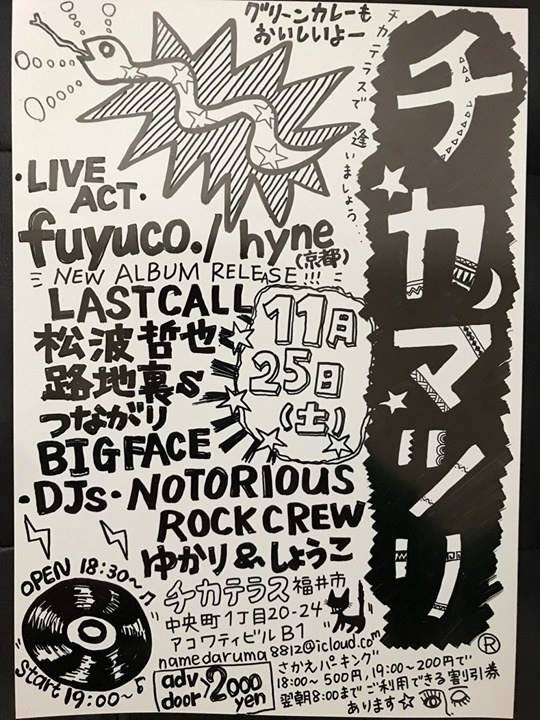 グリーンカレーも
おいしいよー
チカテラスで逢いましょう…
チカマツリ
・LIVE
ACT・
fuyuco./hyne
(京都)
NEW ALBUM RELEASE!!!
LASTCALL
松波哲也
路地裏s
つながり
BIGFACE
11月
25日
(土)
・DJs・NOTORIOUS
ROCKCREW
ゆかり&しょうこ
OPEN 18:30〜
start 19:00〜
チカテラス 福井市
中央町1丁目20-24
アコワティビルB1
namedaruma8812@icloud.com
adv
door
2000
yen
さかえパーキング
18:00〜500円,19:00〜200円で
翌朝8:00までご利用できる割引券
あります☆
®